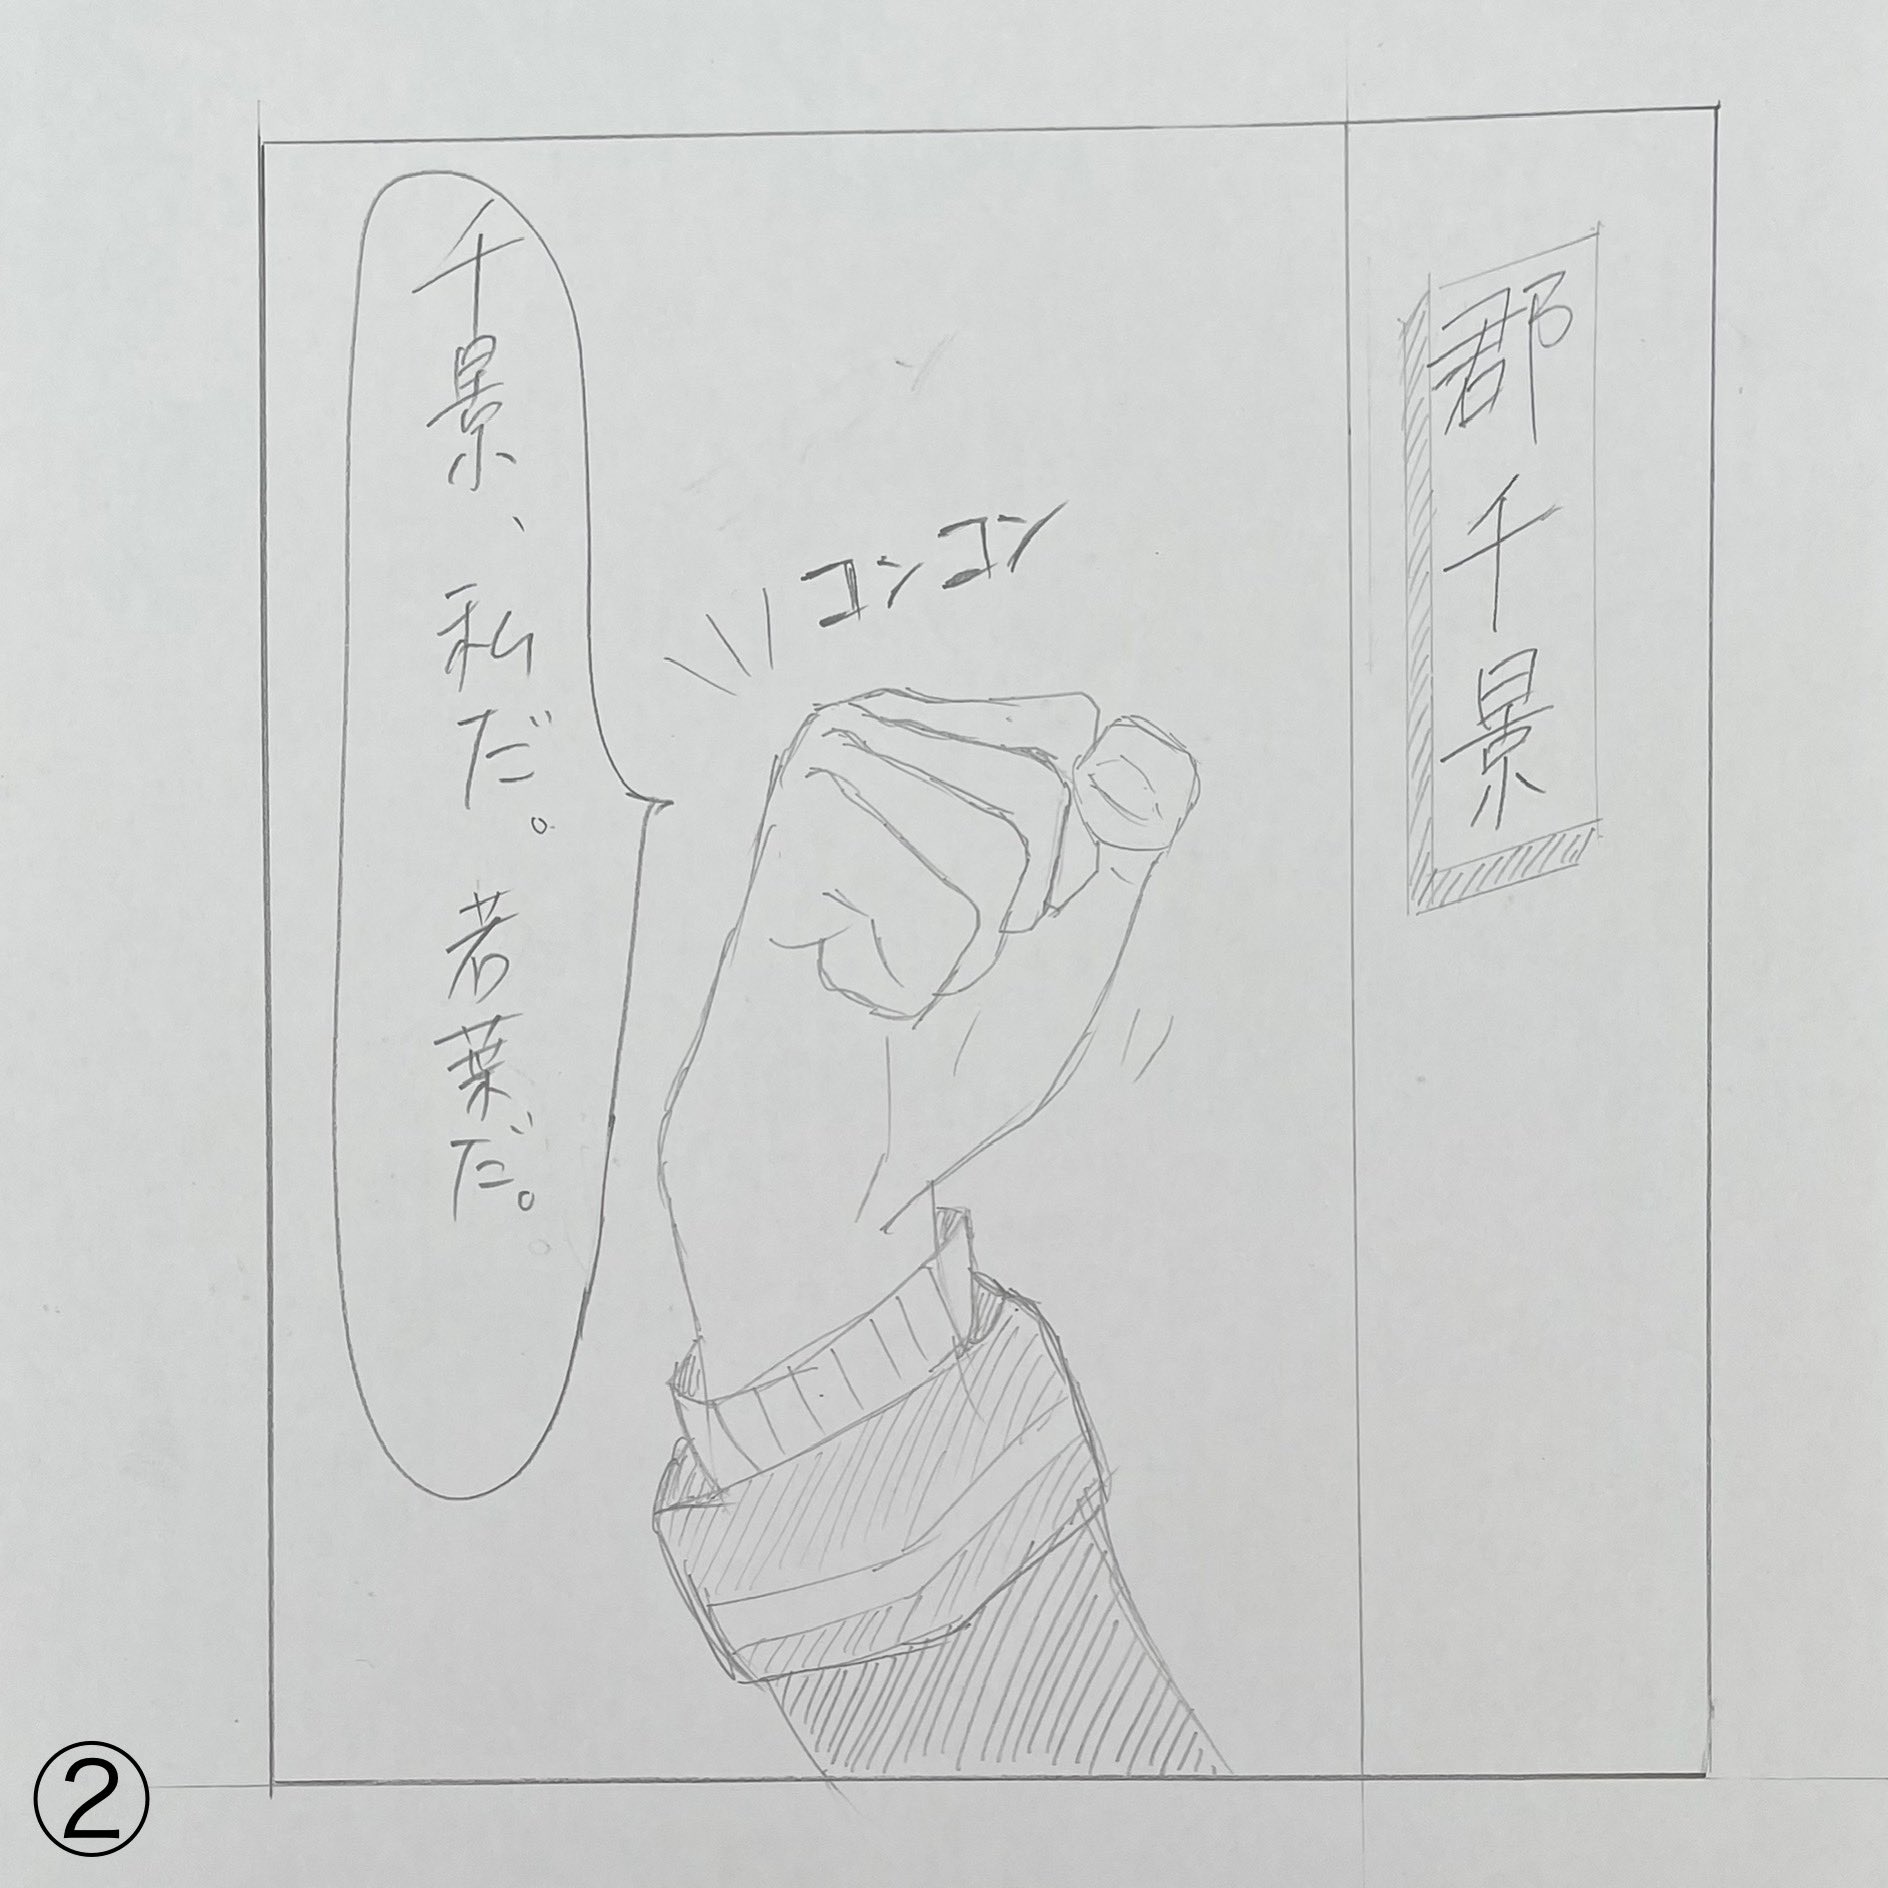 郡千景
コンコン
千景、私だ。若葉だ。
②